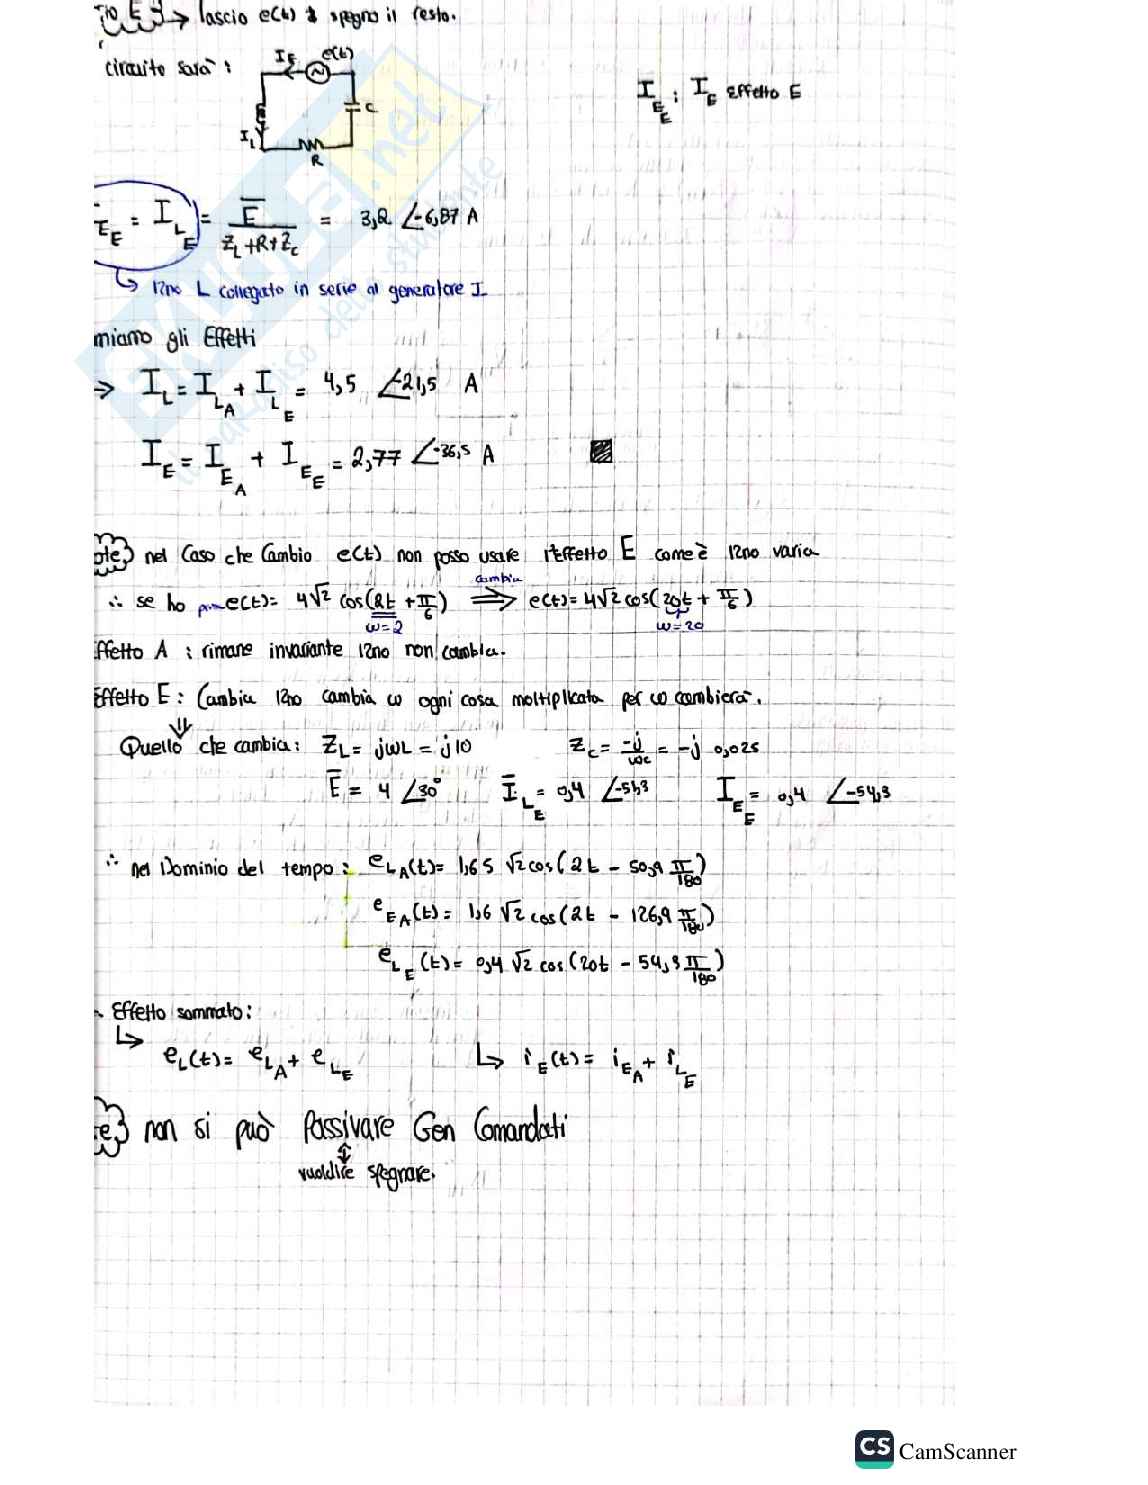 E → lascio e(t) e spegno il resto.
circuito sarà :
I_E e(t)
C
I_L
R
I_E_E : I_E Effetto E
I_E_E = I_L_E = E / (Z_L + R + Z_c) = 3,2 ∠-6,87 A
↳ L collegato in serie al generatore I
miamo gli Effetti
⇒ I_L = I_L_A + I_L_E = 4,5 ∠-21,5 A
I_E = I_E_A + I_E_E = 2,77 ∠-36,5 A
ote} nel Caso che Cambio e(t) non posso usare l'Effetto E come è varia
∴ se ho e(t) = 4√2 cos(2t + π/6) ⇒ e(t) = 4√2 cos(20t + π/6)
cambia
ω=2
ω=20
ffetto A : rimane invariante non cambia.
Effetto E : Cambia cambia ω ogni cosa moltiplicata per ω cambierà.
⇓
Quello che cambia : Z_L = jωL = j10 Z_c = -j/ωc = -j 0,025
E = 4 ∠30° I_L_E = 0,4 ∠-54,3 I_E_E = 0,4 ∠-54,3
∴ nel Dominio del tempo : e_L_A(t) = 1,65 √2 cos(2t - 50,9 π/180)
e_E_A(t) = 1,6 √2 cos(2t - 126,9 π/180)
e_L_E(t) = 0,4 √2 cos(20t - 54,3 π/180)
Effetto sommato :
↳ e_L(t) = e_L_A + e_L_E ↳ i_E(t) = i_E_A + i_L_E
te} non si può Passivare Gen Comandati
↕
vuoldire spegnare.
CS CamScanner